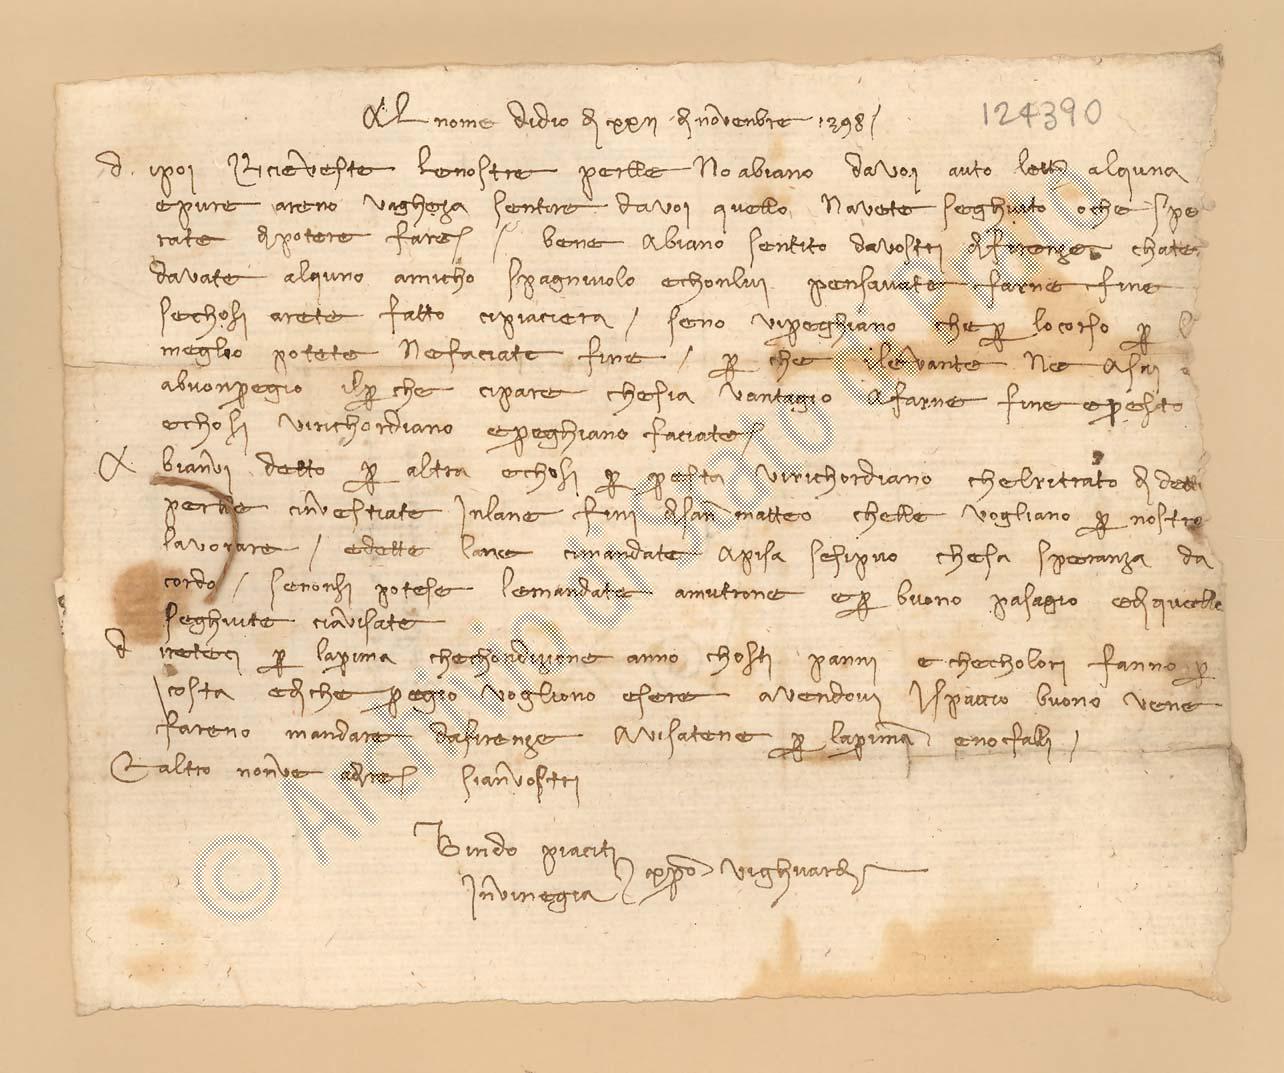 Al nome di dio di xxii di novenbre 1398
124390
dipoi riceveste le nostre perlle no abiano da voi auto lett alquna
epure areno vagheza sentire da voi quello navete seghuito oche spe
rate di potere fare / bene abiano sentito da vostri di firenze chate
davate alquno amicho spagnuolo echonlui pensavate farne fine
sechosi arete fatto cipiaciera / seno vipreghiano cheper locorso per l
meglio potete nefaciate fine / per che ilevante ne asai
abuonpregio ilper che cipare chesia vantagio afarne fine epresto
echosi virichordiano epreghiano faciate
Abianvi detto per altra echosi per questa virichordiano chelritratto di dette
perlle cinvestiate inlane fini disan matteo chelle vogliano per nostro
lavorare / edette lane cimandate apisa sesipuo chesa speranza da
cordo / senonsi potese lemandate amutrone eper buono pasagio edi quello
seghuite ciavisate
direteci per laprima chechondizione anno chosti panni e checholori fanno per
costa ediche pregio vogliono esere avendovi ispaccio buono vene
fareno mandare dafirenze avisatene per laprima enofalli /
Ealtro nonve adire sianvostri
Bindo piaciti
invinegia
© Archivio di Stato di Prato